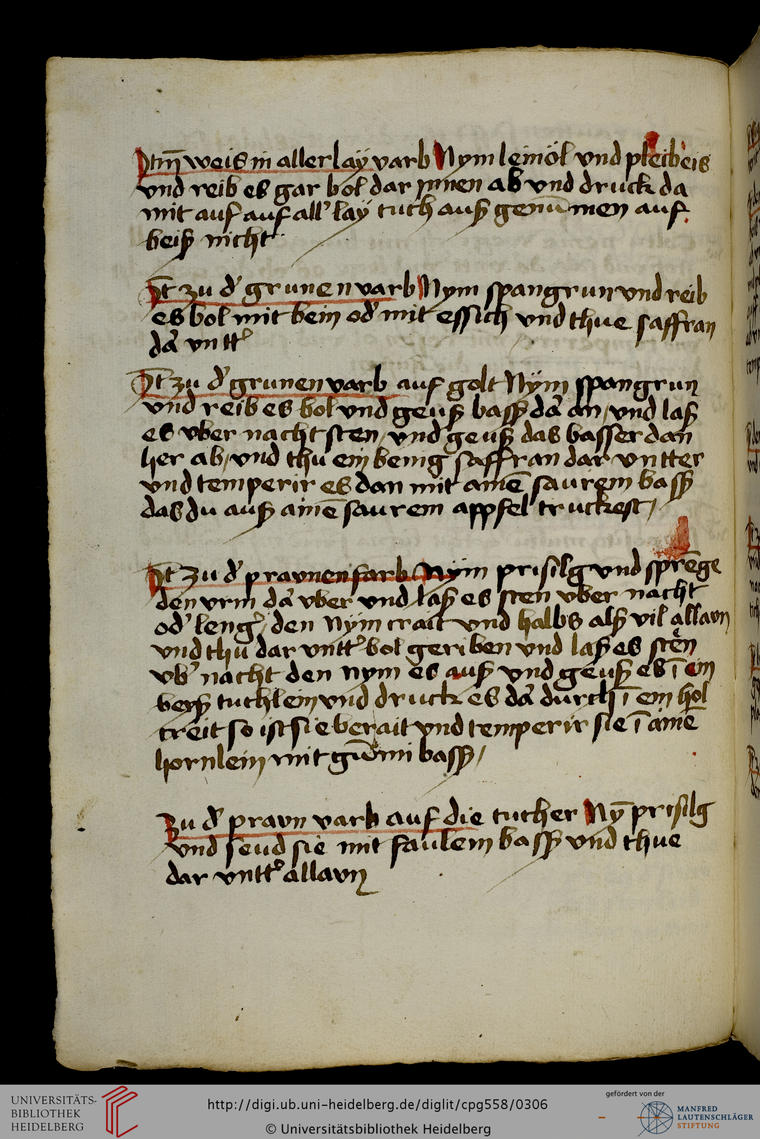 Itm̄ weis in aller lay varb Nym leinöl vnd pleibeis
vnd reib es gar bol dar innen ab vnd druck da
mit auf auf all' lay tuch auß genūmen auf
beiß nicht
It zu d' grunen varb Nym spangrun vnd reib
es bol mit bein od' mit essich vnd thue saffran
da' vntt'
It zu d' grunen varb auf golt Nÿm spangrun
vnd reib es bol vnd geuß bass' da' an / vnd laß
es vber nacht sten / vnd geuß das basser dan
her ab / vnd thu ein benig saffran dar vntter
vnd temperir es dan mit ainē saurem bass'
das du auß ainē saurem appfel truckest /
It zu d' praunen farb Nÿm prisilg vnd sprenge
den vrin da' vber vnd laß es sten vber nacht
od' leng' / den Nÿm crait vnd halbs alß vil allaun
vnd thu dar vntt' bol geriben vnd laß es sten
vb' nacht den nym es auß vnd geuß es ī ein
beyß tuchlein vnd druck es da' durch ī ein hol
creit so ist sie berait vnd temperir sie ī ainē
hornlein mit gūmi bass' /
Zu d' praun varb auf die tucher Nȳ prisilg
vnd seud sie mit faulem bass' vnd thue
dar vntt' allaun
UNIVERSITÄTS-
BIBLIOTHEK
HEIDELBERG
http://digi.ub.uni-heidelberg.de/diglit/cpg558/0306
© Universitätsbibliothek Heidelberg
gefördert von der
MANFRED
LAUTENSCHLÄGER
STIFTUNG